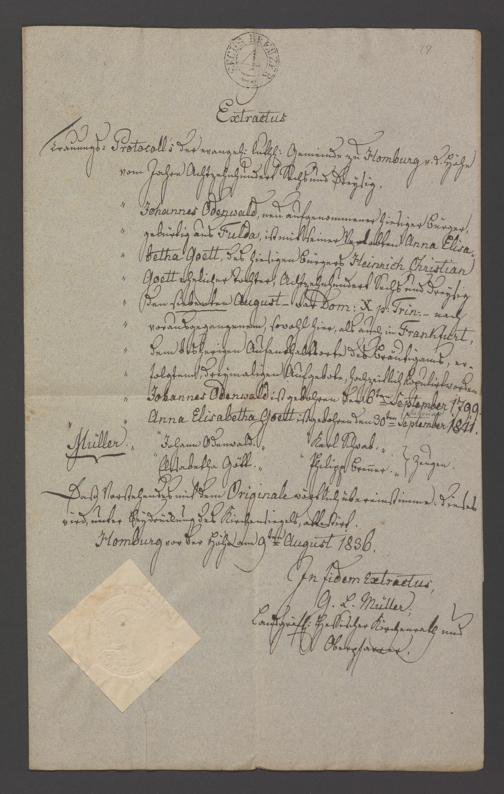 SECHS KREUZER
Extractus
Trauungs: Protocolls der evangeli: luth: Gemeinde zu Homburg v. d. Höhe
vom Jahre Achtzehnhundert Sechs und Dreysig.
" Johannes Odenwald, neu aufgenommener hiesiger Bürger,
" gebürtig aus Fulda, ist mit seiner Verlobten Anna Elisa-
" betha Goett, des hiesigen Bürgers Heinrich Christian
" Goett ehelicher Tochter, Achtzehnhundert Sechs und Dreysig
" den siebenten August – Dom: X p. Trin: – nach
" vorausgegangenem, sowohl hier, als auch in Frankfurt,
" dem bisherigen Aufenthaltsorte des Bräutigams, er-
" folgtem, dreimaligen Aufgebote, copulirt worden
" Johannes Odenwald ist gebohren den 6ten September 1799.
" Anna Elisabetha Goett ist gebohren den 30ten September 1811.
Müller. " Johann Odenwald. " Karl Schwab. "
" Elisabetha Gött. " Philipp " Zeugen.
Daß Vorstehendes mit dem Originale wörtlich übereinstimme, dieses
wird, unter Beydrückung des Kirchensiegels, attestirt.
Homburg vor der Höhe am 9ten August 1836.
In fidem Extractus,
G. L. Müller,
Landgräfl: Hessischer Kirchenrath und
Oberpfarrer.